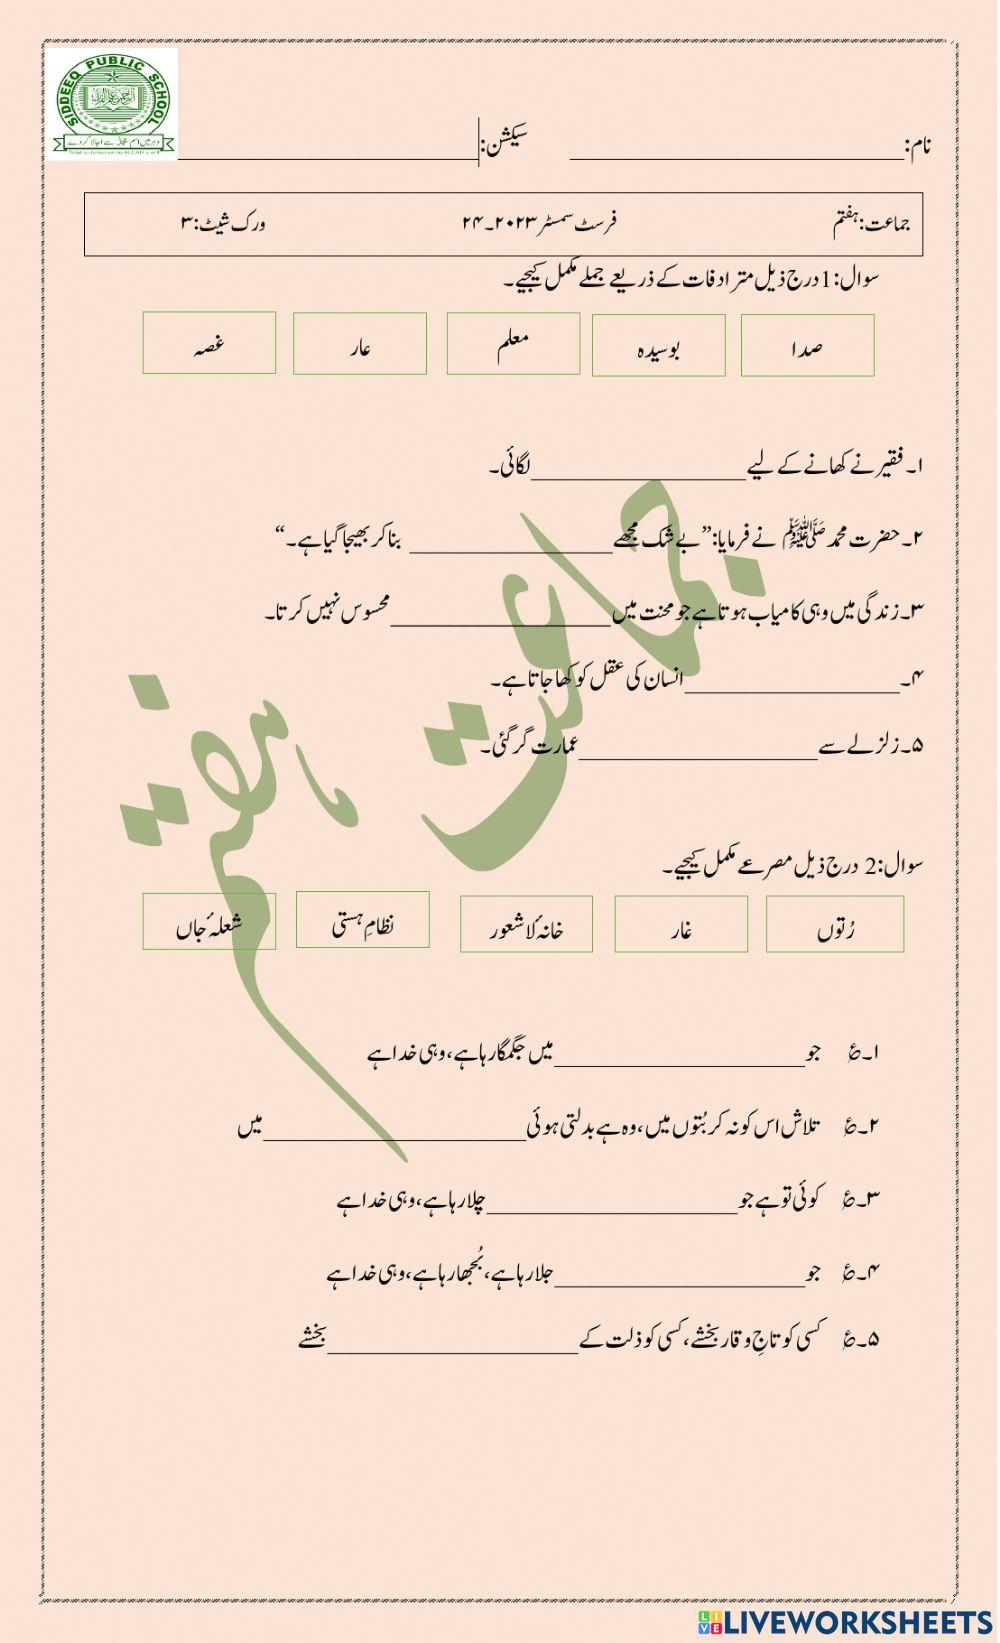 SIDDEEQ PUBLIC SCHOOL
نام:____________ سیکشن:____________
جماعت: ہفتم فرسٹ سمسٹر ۲۰۲۳۔۲۴ ورک شیٹ: ۳
سوال:1 درج ذیل مترادفات کے ذریعے جملے مکمل کیجیے۔
صدا بوسیدہ معلم عار غصہ
۱۔ فقیر نے کھانے کے لیے____________لگائی۔
۲۔ حضرت محمد ﷺ نے فرمایا:”بے شک مجھے____________ بنا کر بھیجا گیا ہے۔“
۳۔ زندگی میں وہی کامیاب ہوتا ہے جو محنت میں____________محسوس نہیں کرتا۔
۴۔____________انسان کی عقل کو کھا جاتا ہے۔
۵۔ زلزلے سے____________عمارت گر گئی۔
جماعت ہفتم
سوال:2 درج ذیل مصرعے مکمل کیجیے۔
رُتوں غار خانۂ لاشعور نظامِ ہستی شعلۂ جاں
۱۔ ؏ جو____________میں جگمگا رہا ہے، وہی خدا ہے
۲۔ ؏ تلاش اس کو نہ کر بُتوں میں، وہ ہے بدلتی ہوئی____________میں
۳۔ ؏ کوئی تو ہے جو____________چلا رہا ہے، وہی خدا ہے
۴۔ ؏ جو____________جلا رہا ہے، بُجھا رہا ہے، وہی خدا ہے
۵۔ ؏ کسی کو تاجِ وقار بخشے، کسی کو ذلت کے____________بخشے
LIVEWORKSHEETS